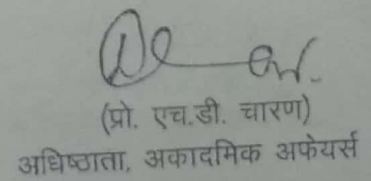 (प्रो. एच.डी. चारण)
अधिष्ठाता, अकादमिक अफेयर्स